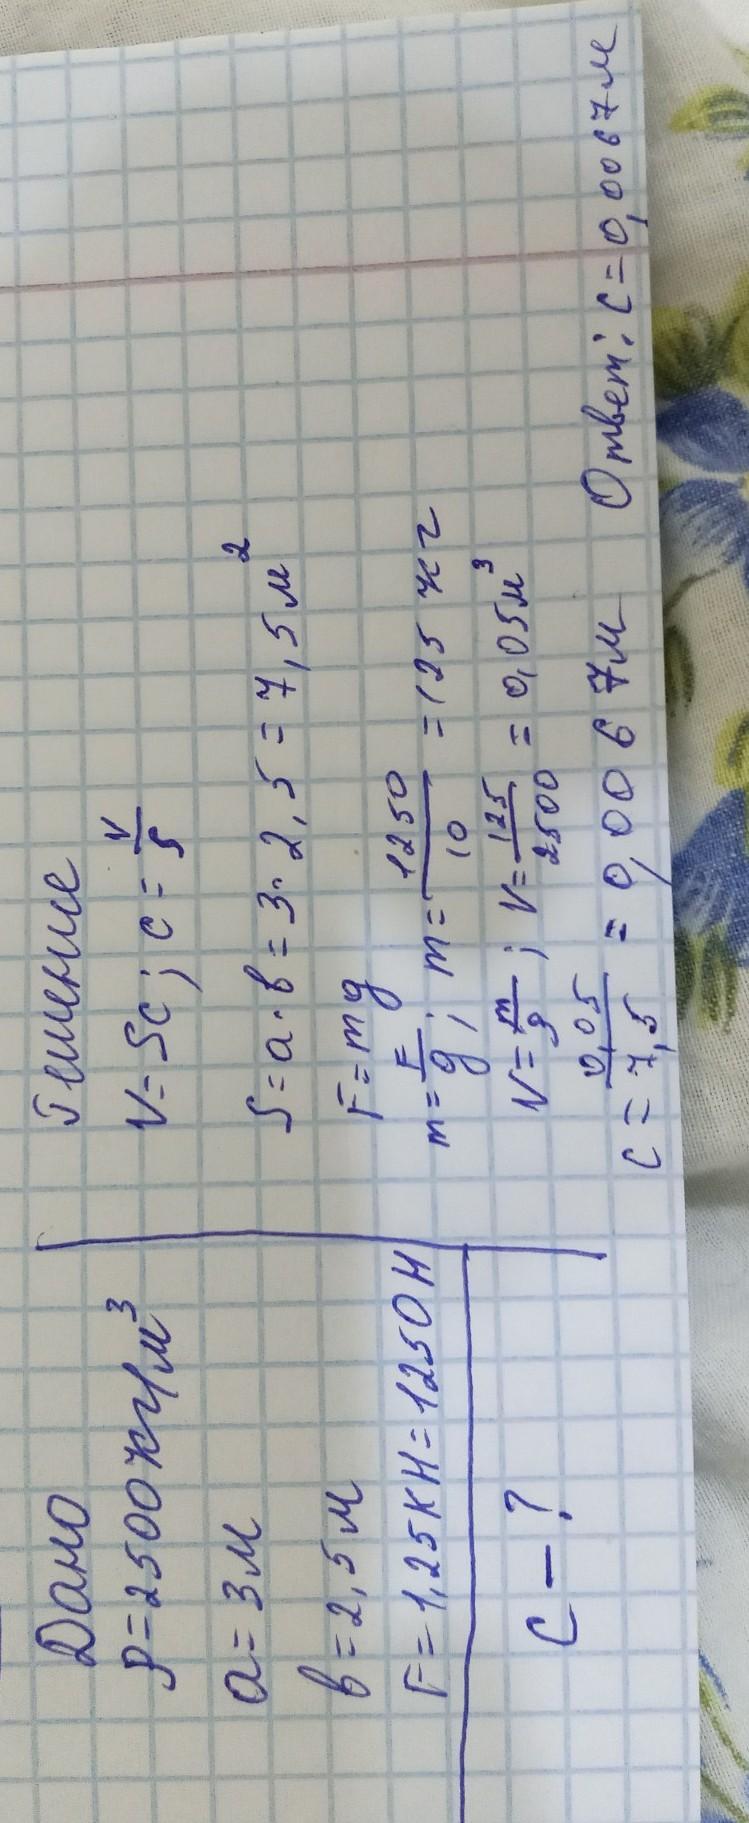 Дано
ρ=2500кг/м³
a=3м
в=2,5м
F=1,25кН=1250Н
С-?
Решение
V=Sc; c=V/S
S=a·в=3·2,5=7,5м²
F=mg
m=F/g; m=1250/10=125 кг
V=m/ρ; V=125/2500=0,05м³
c=0,05/7,5=0,0067м Ответ: с=0,0067м